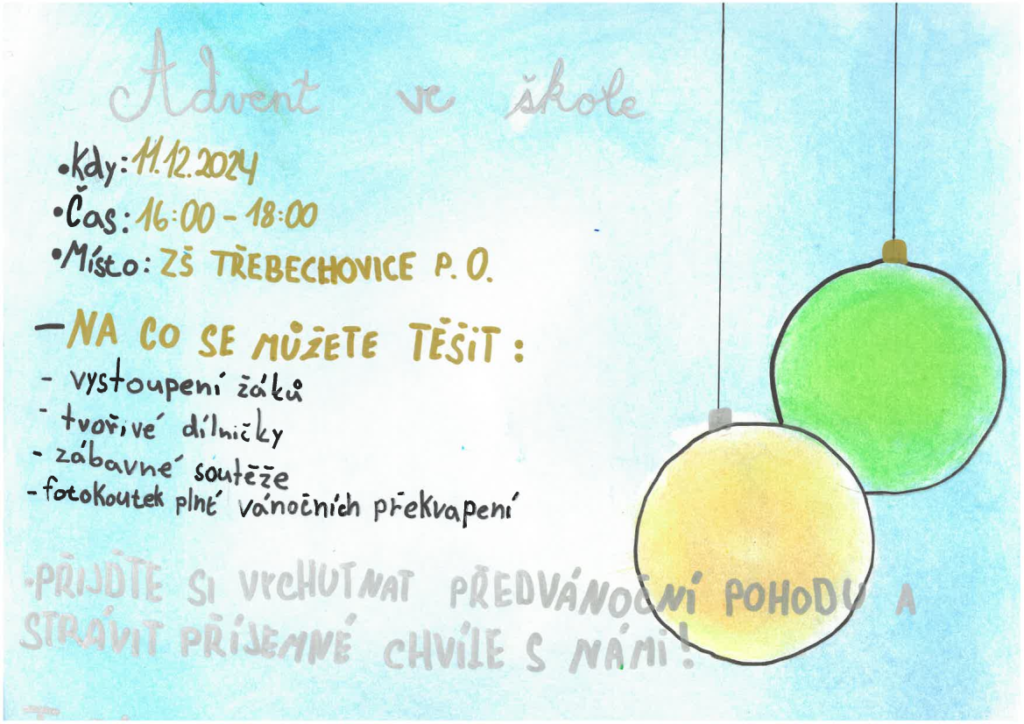 Advent ve škole
•Kdy: 11.12.2024
•Čas: 16:00 - 18:00
•Místo: ZŠ TŘEBECHOVICE P. O.
- NA CO SE MŮŽETE TĚŠIT:
- vystoupení žáků
- tvořivé dílničky
- zábavné soutěže
- fotokoutek plný vánočních překvapení
•PŘIJĎTE SI VYCHUTNAT PŘEDVÁNOČNÍ POHODU A
STRÁVIT PŘÍJEMNÉ CHVÍLE S NÁMI!